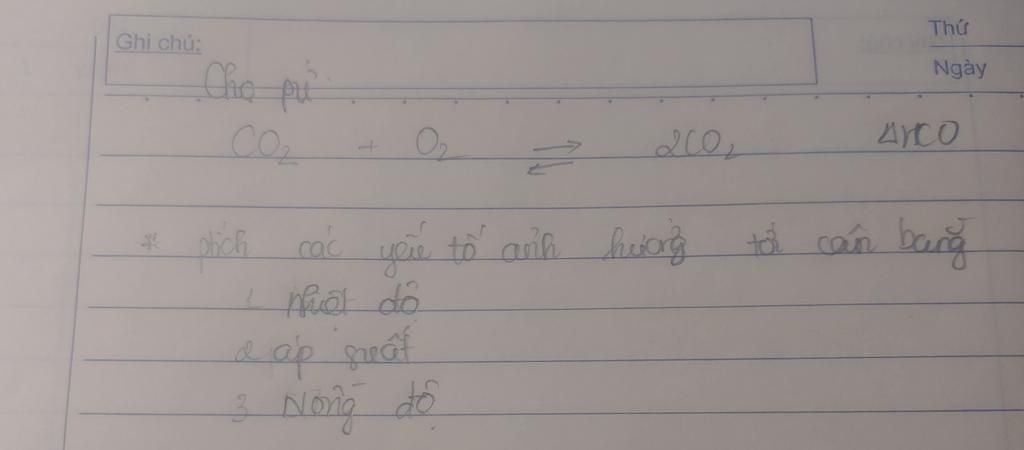 Thứ
Ghi chú:
Ngày
Cho pứ
CO₂ + O₂ ⇌ 2CO₂ ΔH<0
* phích các yếu tố ảnh hưởng tới cân bằng
1 nhiệt độ
2 áp suất
3 Nồng độ